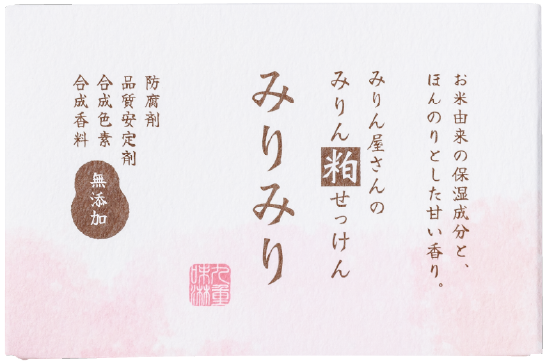 お米由来の保湿成分と、
ほんのりとした甘い香り。
みりん屋さんの
みりん粕せっけん
みりみり
防腐剤
品質安定剤
合成色素
合成香料
無添加
九重
味淋